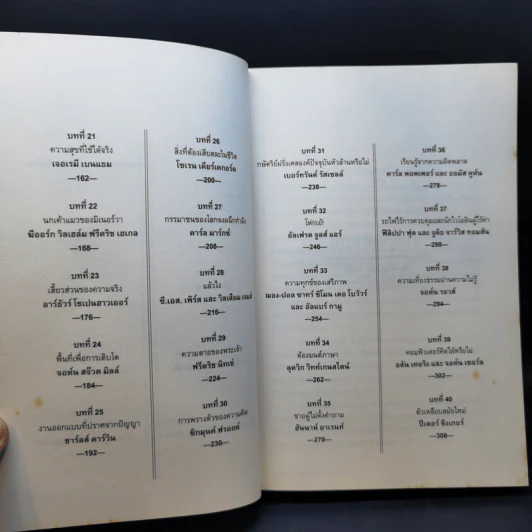 บทที่ 21
ความสุขที่ใช้ได้จริง
เจอเรมี เบนแธม
—162—
บทที่ 22
นกเค้าแมวของมิเนอร์วา
เกออร์ก วิลเฮล์ม ฟรีดริช เฮเกล
—168—
บทที่ 23
เสี้ยวส่วนของความจริง
อาร์ธัวร์ โชเปนฮาวเออร์
—176—
บทที่ 24
พื้นที่เพื่อการเติบโต
จอห์น สจ๊วต มิลล์
—184—
บทที่ 25
งานออกแบบที่ปราศจากปัญญา
ชาร์ลส์ ดาร์วิน
—192—
บทที่ 26
สิ่งที่ต้องเสียสละในชีวิต
โซเรน เคียร์เคกอร์ด
—200—
บทที่ 27
กรรมาชนของโลกจงผนึกกำลัง
คาร์ล มาร์กซ์
—208—
บทที่ 28
แล้วไง
ซี.เอส. เพิร์ส และ วิลเลียม เจมส์
—216—
บทที่ 29
ความตายของพระเจ้า
ฟรีดริช นิทเช่
—224—
บทที่ 30
การพรางตัวของความคิด
ซิกมุนด์ ฟรอยด์
—230—
บทที่ 31
กษัตริย์ฝรั่งเศสองค์ปัจจุบันหัวล้านหรือไม่
เบอร์ทรันด์ รัสเซลล์
—238—
บทที่ 32
โห่!เย้!
อัลเฟรด จูลส์ แอร์
—246—
บทที่ 33
ความทุกข์ของเสรีภาพ
ฌอง-ปอล ซาทร์ ซีโมน เดอ โบวัวร์
และ อัลแบร์ กามู
—254—
บทที่ 34
ต้องมนต์ภาษา
ลุดวิก วิทท์เกนสไตน์
—262—
บทที่ 35
ชายผู้ไม่ตั้งคำถาม
ฮันนาห์ อาเรนท์
—270—
บทที่ 36
เรียนรู้จากความผิดพลาด
คาร์ล พอพเพอร์ และ ธอมัส คูห์น
—278—
บทที่ 37
รถไฟไร้การควบคุมและนักไวโอลินผู้ไร้ค่า
ฟิลิปปา ฟุต และ จูดิธ จาร์วิส ทอมสัน
—288—
บทที่ 38
ความเที่ยงธรรมผ่านความไม่รู้
จอห์น รอวส์
—294—
บทที่ 39
คอมพิวเตอร์คิดได้หรือไม่
อลัน เทอริง และ จอห์น เซอร์ล
—302—
บทที่ 40
ตัวเหลือบสมัยใหม่
ปีเตอร์ ซิงเกอร์
—308—